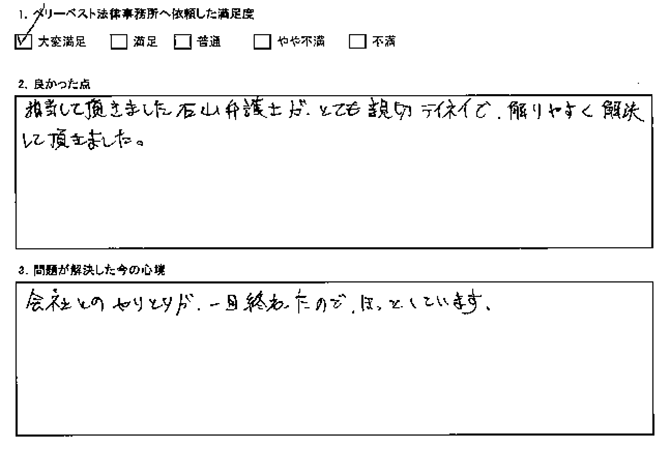 1. ベリーベスト法律事務所へ依頼した満足度
大変満足 満足 普通 やや不満 不満
2. 良かった点
担当して頂きました石山弁護士が、とても親切テイネイで、解りやすく解決
して頂きました。
3. 問題が解決した今の心境
会社とのやりとりが、一旦終わったので、ほっとしています。